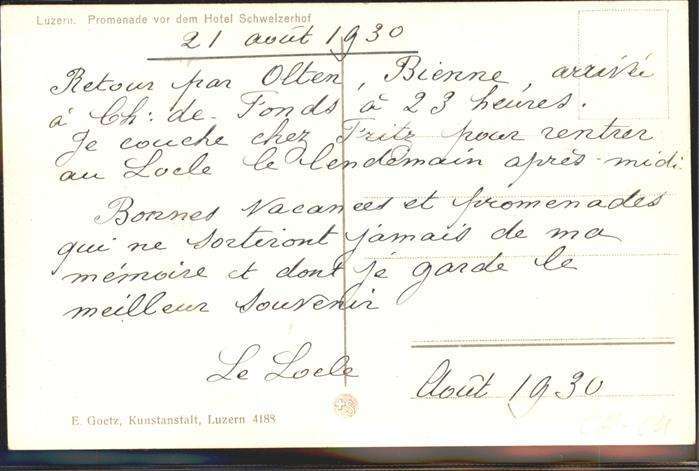 Luzern. Promenade vor dem Hotel Schweizerhof
21 août 1930
Retour par Olten, Bienne, arrivé
à Ch: de-Fonds à 23 heures.
Je couche chez Fritz pour rentrer
au Locle le lendemain après-midi.
Bonnes Vacances et promenades
qui ne sortiront jamais de ma
mémoire et dont je garde le
meilleur souvenir
Le Locle
Août 1930
E. Goetz, Kunstanstalt, Luzern 4188